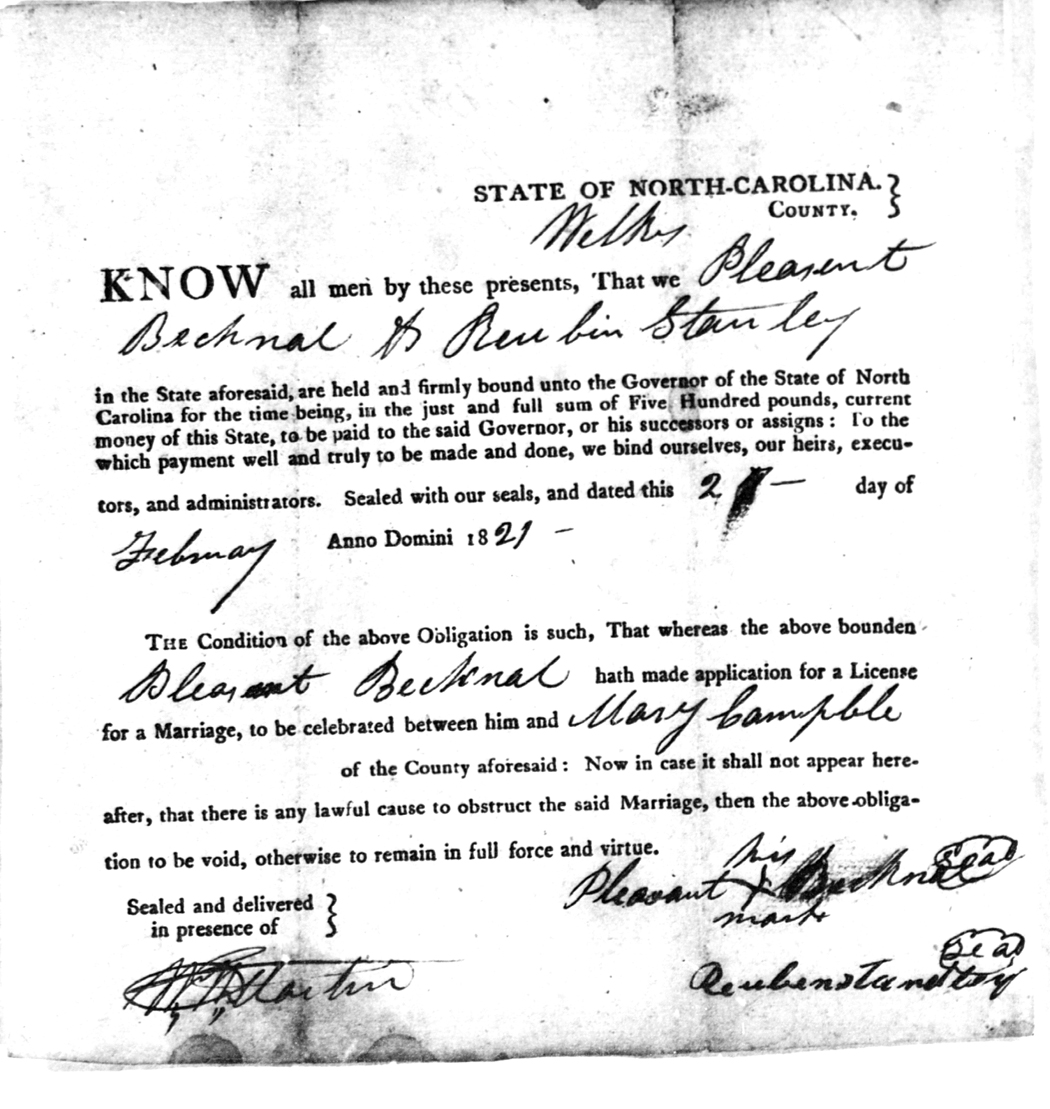 STATE OF NORTH-CAROLINA.
Wilkes COUNTY.
KNOW all men by these presents, That we Pleasent
Becknal & Reubin Stanley
in the State aforesaid, are held and firmly bound unto the Governor of the State of North
Carolina for the time being, in the just and full sum of Five Hundred pounds, current
money of this State, to be paid to the said Governor, or his successors or assigns: To the
which payment well and truly to be made and done, we bind ourselves, our heirs, execu-
tors, and administrators. Sealed with our seals, and dated this 2 — day of
February Anno Domini 1821 —
THE Condition of the above Obligation is such, That whereas the above bounden
Pleasant Becknal hath made application for a License
for a Marriage, to be celebrated between him and Mary Campble
of the County aforesaid: Now in case it shall not appear here-
after, that there is any lawful cause to obstruct the said Marriage, then the above obliga-
tion to be void, otherwise to remain in full force and virtue.
his
Pleasant X Becknal Seal
mark
Sealed and delivered
in presence of
Martin
Reuben Standley Seal